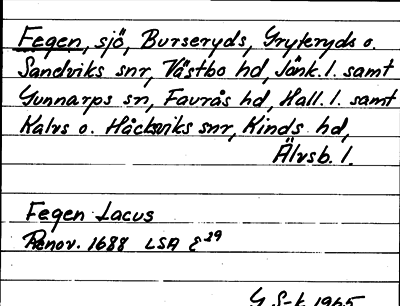 Fegen, sjö, Burseryds, Gryteryds o.
Sandviks snr, Västbo hd, Jönk. l. samt
Gunnarps sn, Faurås hd, Hall. l. samt
Kalvs o. Håcksviks snr, Kinds hd,
Älvsb. l.
Fegen Lacus
Renov. 1688 LSA E29
G S-k 1965